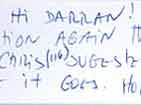 Hi DARRAN!
TION AGAIN
CHRIS (116) SUGESTE
IT GOES. HO